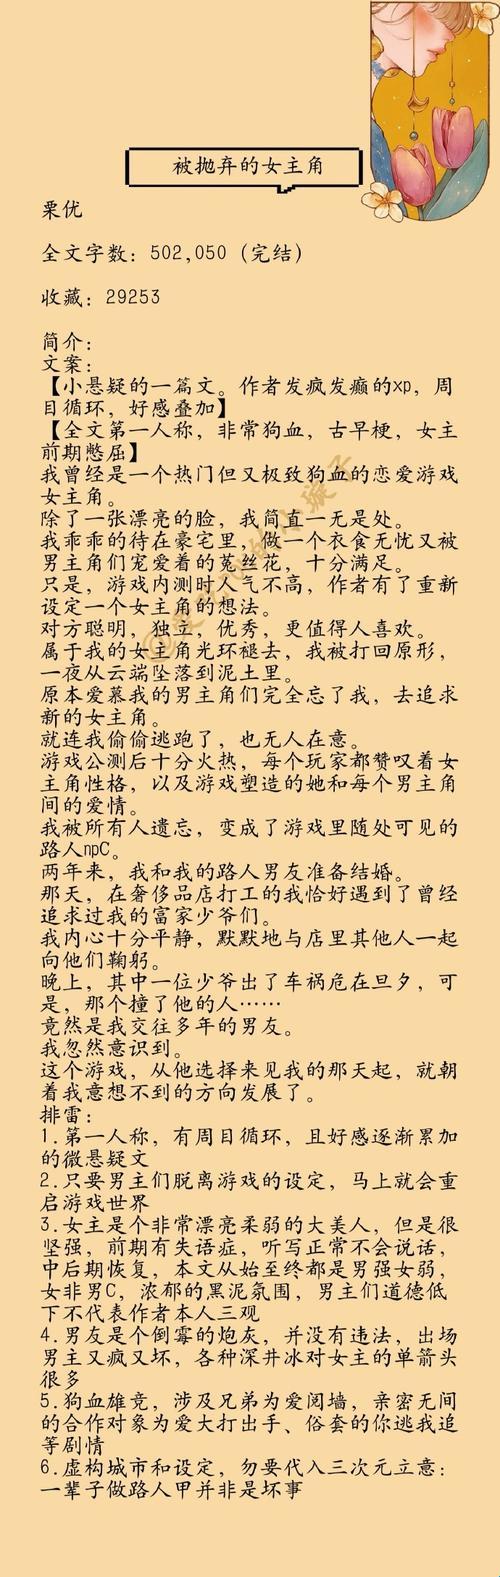 被抛弃的女主角
栗优
全文字数：502,050（完结）
收藏：29253
简介：
文案：
【小悬疑的一篇文。作者发疯发癫的xp，周
目循环，好感叠加】
【全文第一人称，非常狗血，古早梗，女主
前期憋屈】
我曾经是一个热门但又极致狗血的恋爱游戏
女主角。
除了一张漂亮的脸，我简直一无是处。
我乖乖的待在豪宅里，做一个衣食无忧又被
男主角们宠爱着的菟丝花，十分满足。
只是，游戏内测时人气不高，作者有了重新
设定一个女主角的想法。
对方聪明，独立，优秀，更值得人喜欢。
属于我的女主角光环褪去，我被打回原形，
一夜从云端坠落到泥土里。
原本爱慕我的男主角们完全忘了我，去追求
新的女主角。
就连我偷偷逃跑了，也无人在意。
游戏公测后十分火热，每个玩家都赞叹着女
主角性格，以及游戏塑造的她和每个男主角
间的爱情。
我被所有人遗忘，变成了游戏里随处可见的
路人npC。
两年来，我和我的路人男友准备结婚。
那天，在奢侈品店打工的我恰好遇到了曾经
追求过我的富家少爷们。
我内心十分平静，默默地与店里其他人一起
向他们鞠躬。
晚上，其中一位少爷出了车祸危在旦夕，可
是，那个撞了他的人……
竟然是我交往多年的男友。
我忽然意识到。
这个游戏，从他选择来见我的那天起，就朝
着我意想不到的方向发展了。
排雷：
1.第一人称，有周目循环，且好感逐渐累加
的微悬疑文
2.只要男主们脱离游戏的设定，马上就会重
启游戏世界
3.女主是个非常漂亮柔弱的大美人，但是很
坚强，前期有失语症，听写正常不会说话，
中后期恢复，本文从始至终都是男强女弱，
女非男C，浓郁的黑泥氛围，男主们道德低
下不代表作者本人三观
4.男友是个倒霉的炮灰，并没有违法，出场
男主又疯又坏，各种深井冰对女主的单箭头
很多
5.狗血雄竞，涉及兄弟为爱阋墙，亲密无间
的合作对象为爱大打出手、俗套的你逃我追
等剧情
6.虚构城市和设定，勿要代入三次元立意：
一辈子做路人甲并非是坏事